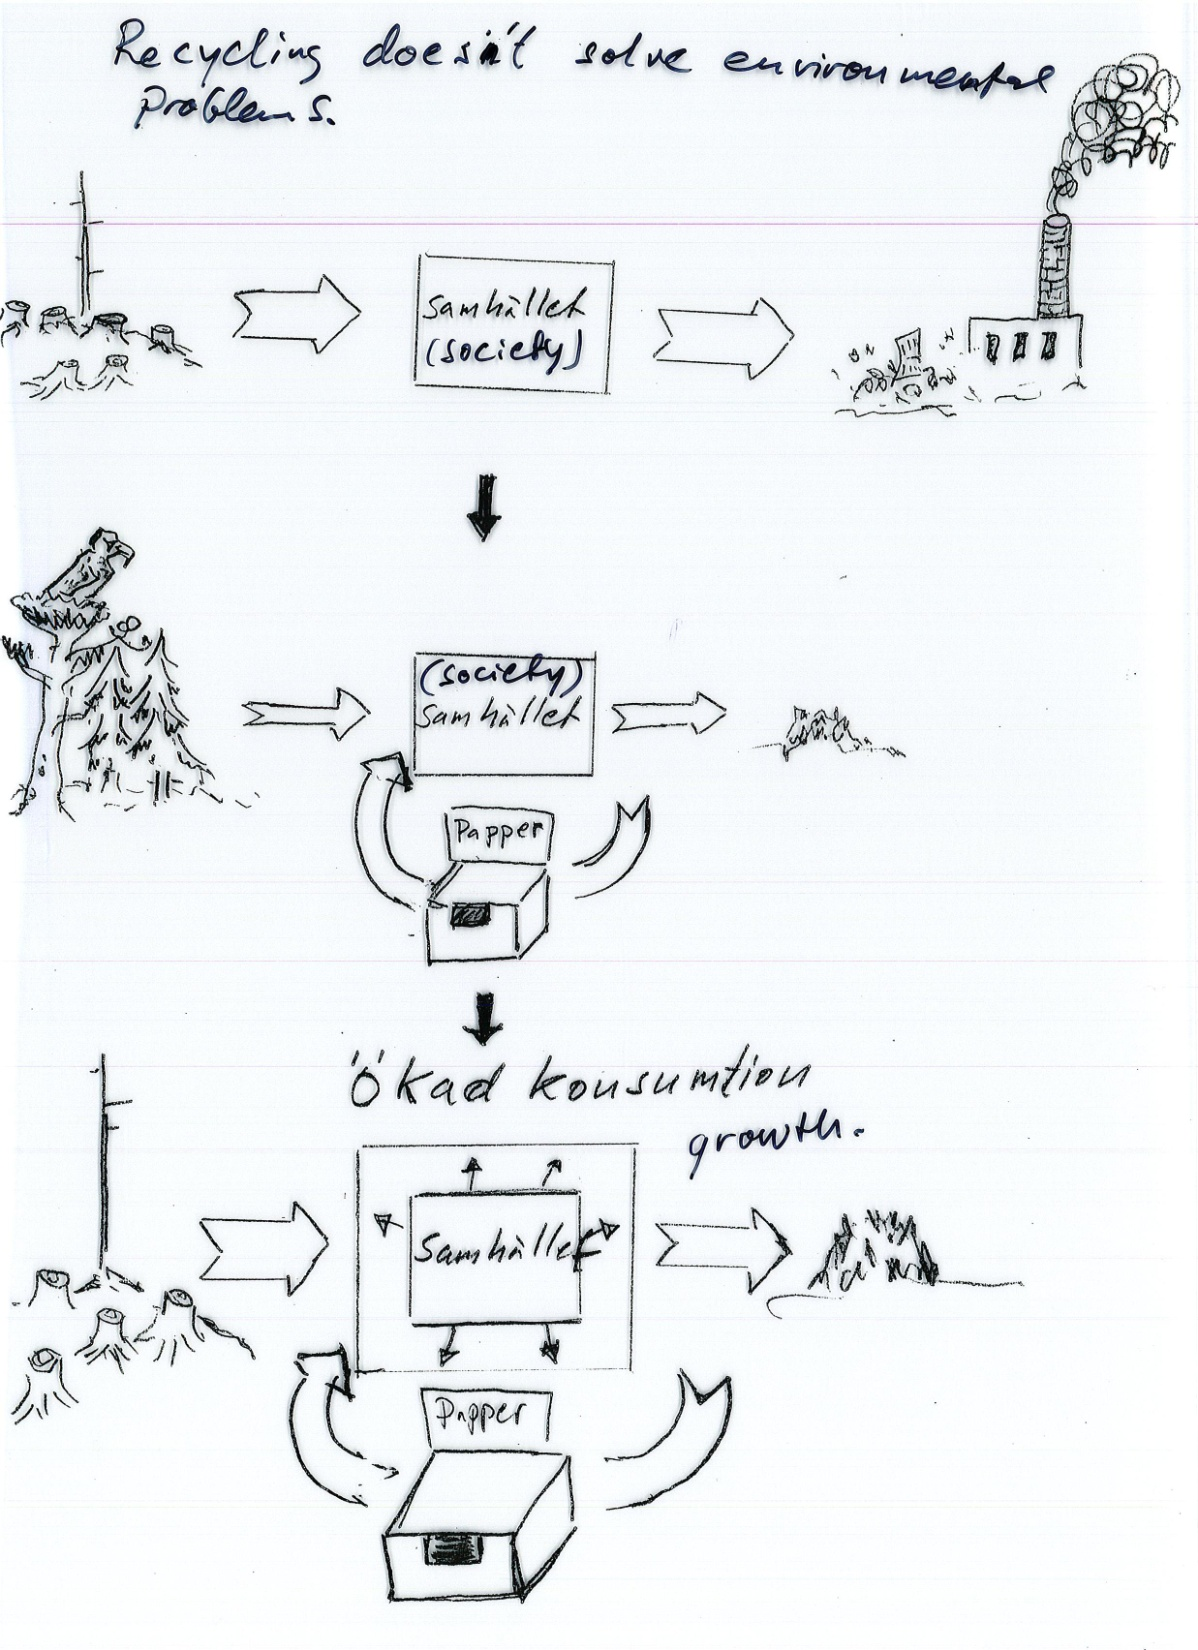 Recycling doesn't solve environmental
problems.
Samhället
(society)
(society)
Samhället
Papper
Ökad konsumtion
growth.
Samhället
Papper